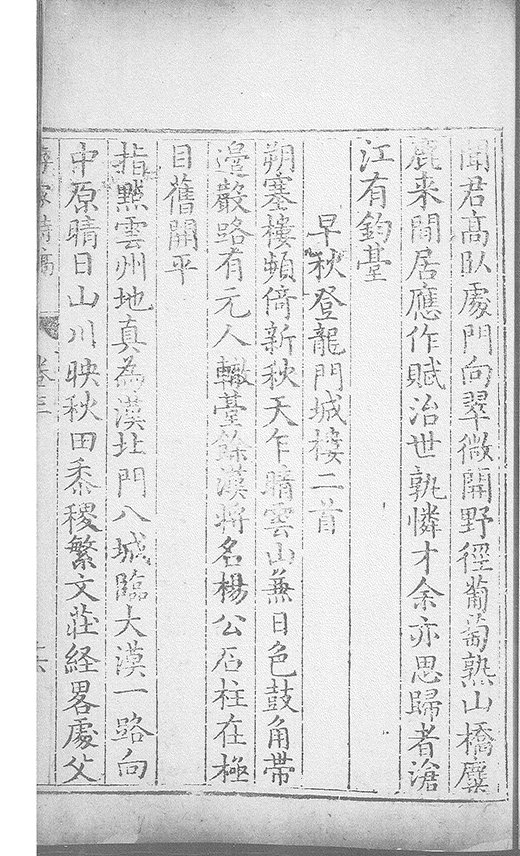 聞君高臥處門向翠微開野徑葡萄熟山橋麋
鹿来閒居應作賦治世孰憐才余亦思歸者滄
江有釣臺
早秋登龍門城樓二首
朔塞樓頻倚新秋天乍晴雲山兼日色鼓角帶
邉嚴路有元人轍臺餘漢將名楊公石柱在極
目舊開平
指點雲州地真為漢北門八城臨大漠一路向
中原晴日山川映秋田黍稷繁文莊経畧處父
卷三